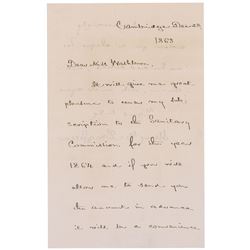 Cambridge Dec 28
1863
Dear Miss
It will give me great
pleasure to renew my sub-
scription to the Sanitary
Commission, for the year
1864 and if you will
allow me, to send you
the amount in advance
it will be a convenience